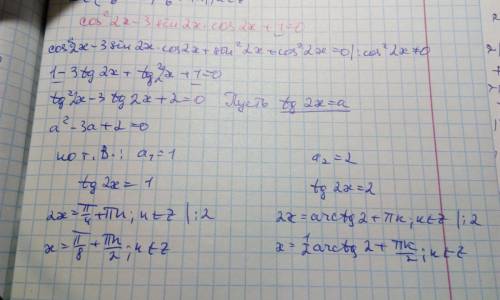 cos²2x-3sin2x·cos2x+1=0
cos²2x-3sin2x·cos2x+sin²2x+cos²2x=0|:cos²2x≠0
1-3tg2x+tg²2x+1=0
tg²2x-3tg2x+2=0 Пусть tg2x=a
a²-3a+2=0
по т. В.: a₁=1 a₂=2
tg2x=1 tg2x=2
2x=π/4+πк; к∈Z |:2 2x=arctg2+πк; к∈Z |:2
x=π/8+πк/2; к∈Z x=1/2arctg2+πк/2; к∈Z